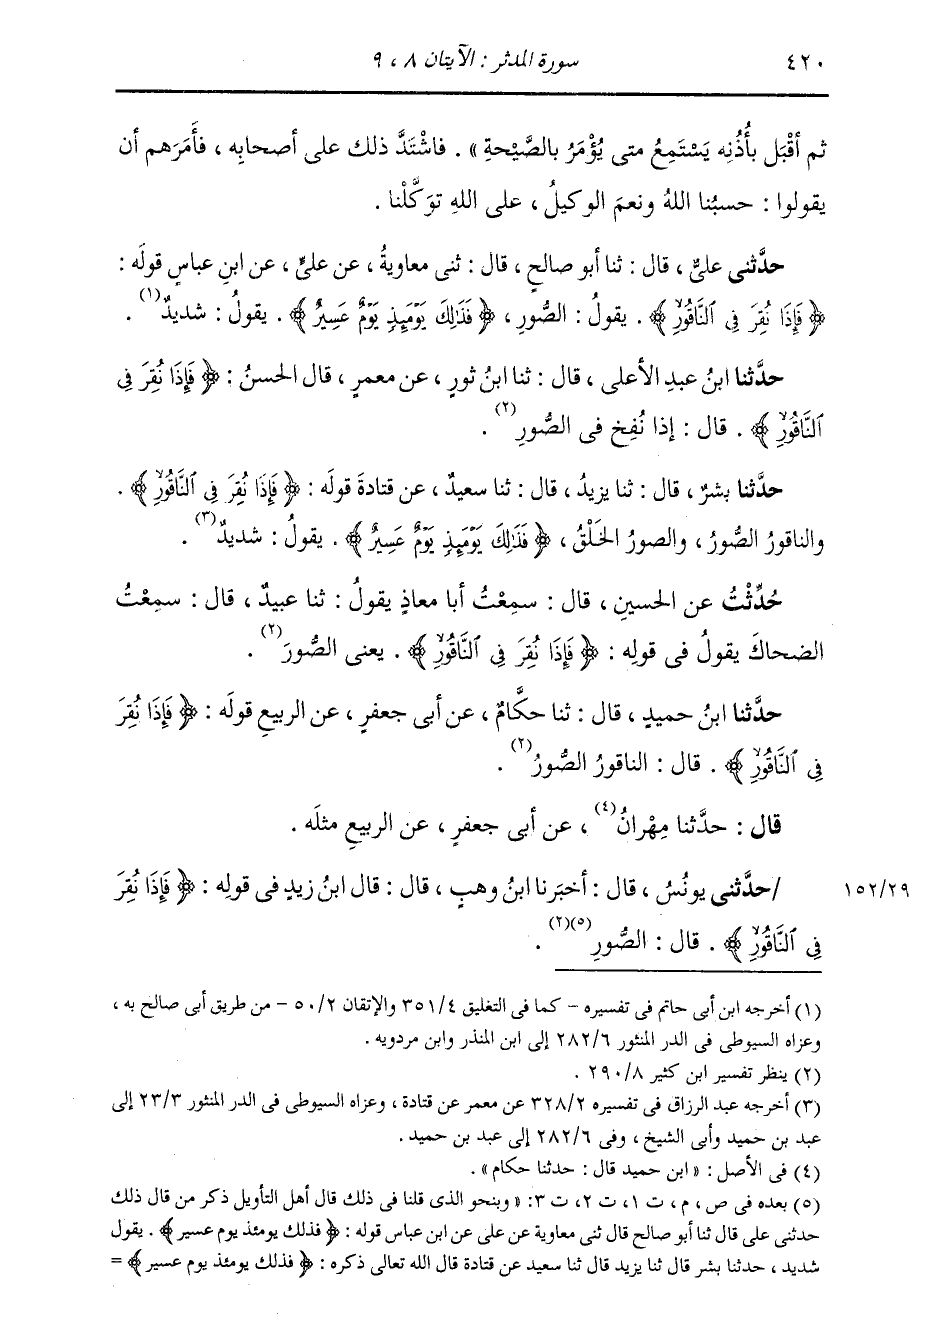 ٤٢٠ سورة المدثر : الآيتان ٨ ، ٩
ثم أقْبَل بأُذُنِه يَسْتَمِعُ متى يُؤْمَرُ بالصَّيْحةِ » . فاشْتَدَّ ذلك على أصحابِه ، فأَمَرَهم أن
يقولوا : حسبُنا اللهُ ونعمَ الوكيلُ ، على اللهِ توَكَّلْنا .
حدَّثنى علىٌّ ، قال : ثنا أبو صالحٍ ، قال : ثنى معاويةُ ، عن علىٍّ ، عن ابنِ عباسٍ قولَه :
﴿ فَإِذَا نُقِرَ فِى ٱلنَّاقُورِ ﴾ . يقولُ : الصُّورِ ، ﴿ فَذَٰلِكَ يَوْمَئِذٍ يَوْمٌ عَسِيرٌ ﴾ . يقولُ : شديدٌ(١) .
حدَّثنا ابنُ عبدِ الأعلى ، قال : ثنا ابنُ ثورٍ ، عن معمرٍ ، قال الحسنُ : ﴿ فَإِذَا نُقِرَ فِى
ٱلنَّاقُورِ ﴾ . قال : إذا نُفِخ فى الصُّورِ(٢) .
حدَّثنا بشرٌ ، قال : ثنا يزيدُ ، قال : ثنا سعيدٌ ، عن قتادةَ قولَه : ﴿ فَإِذَا نُقِرَ فِى ٱلنَّاقُورِ ﴾ .
والناقورُ الصُّورُ ، والصورُ الخَلْقُ ، ﴿ فَذَٰلِكَ يَوْمَئِذٍ يَوْمٌ عَسِيرٌ ﴾ . يقولُ : شديدٌ(٣) .
حُدِّثْتُ عن الحسينِ ، قال : سمِعْتُ أبا معاذٍ يقولُ : ثنا عبيدٌ ، قال : سمِعْتُ
الضحاكَ يقولُ فى قولِه : ﴿ فَإِذَا نُقِرَ فِى ٱلنَّاقُورِ ﴾ . يعنى الصُّورَ(٢) .
حدَّثنا ابنُ حميدٍ ، قال : ثنا حكَّامٌ ، عن أبى جعفرٍ ، عن الربيعِ قولَه : ﴿ فَإِذَا نُقِرَ
فِى ٱلنَّاقُورِ ﴾ . قال : الناقورُ الصُّورُ(٢) .
قال : حدَّثنا مِهْرانُ(٤) ، عن أبى جعفرٍ ، عن الربيعِ مثلَه .
١٥٢/٢٩ /حدَّثنى يونُسُ ، قال : أخبَرنا ابنُ وهبٍ ، قال : قال ابنُ زيدٍ فى قولِه : ﴿ فَإِذَا نُقِرَ
فِى ٱلنَّاقُورِ ﴾ . قال : الصُّورِ(٥)(٢) .
(١) أخرجه ابن أبى حاتم فى تفسيره - كما فى التغليق ٣٥١/٤ والإتقان ٥٠/٢ - من طريق أبى صالح به ،
وعزاه السيوطى فى الدر المنثور ٢٨٢/٦ إلى ابن المنذر وابن مردويه .
(٢) ينظر تفسير ابن كثير ٢٩٠/٨ .
(٣) أخرجه عبد الرزاق فى تفسيره ٣٢٨/٢ عن معمر عن قتادة ، وعزاه السيوطى فى الدر المنثور ٢٣/٣ إلى
عبد بن حميد وأبى الشيخ ، وفى ٢٨٢/٦ إلى عبد بن حميد .
(٤) فى الأصل : « ابن حميد قال : حدثنا حكام » .
(٥) بعده فى ص ، م ، ت ١ ، ت ٢ ، ت ٣ : « وبنحو الذى قلنا فى ذلك قال أهل التأويل ذكر من قال ذلك
حدثنى على قال ثنا أبو صالح قال ثنى معاوية عن على عن ابن عباس قوله : ﴿ فذلك يومئذ يوم عسير ﴾ . يقول
شديد ، حدثنا بشر قال ثنا يزيد قال ثنا سعيد عن قتادة قال الله تعالى ذكره : ﴿ فذلك يومئذ يوم عسير ﴾ =